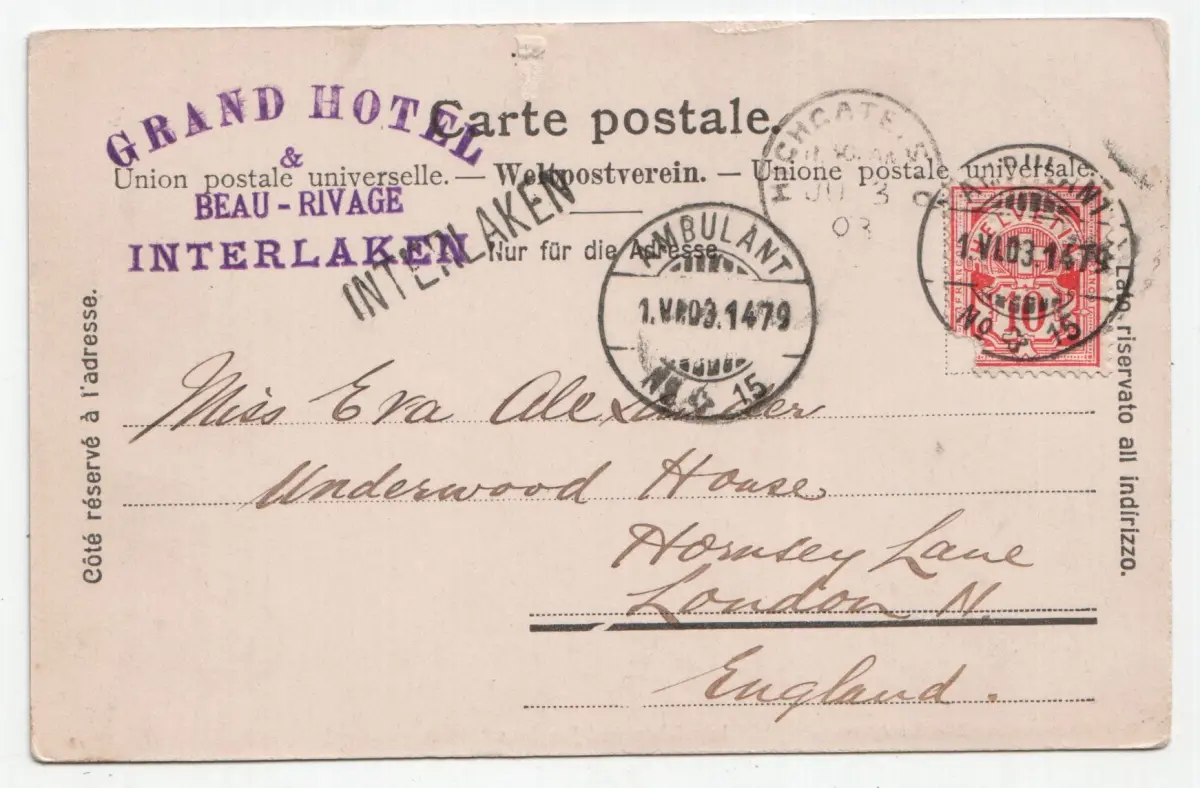 GRAND HOTEL
&
BEAU-RIVAGE
INTERLAKEN
Carte postale.
Union postale universelle. — Weltpostverein. — Unione postale universale.
Nur für die Adresse
INTERLAKEN
AMBULANT
1.VI.03.1479
No. 15
HIGHGATE.S.O
JU 3
03
AMBULANT
1.VI.03.1479
No 15
HELVETIA
10
Côté réservé à l'adresse.
Lato riservato all indirizzo.
Miss Eva Alexander
Underwood House
Hornsey Lane
London N.
England.